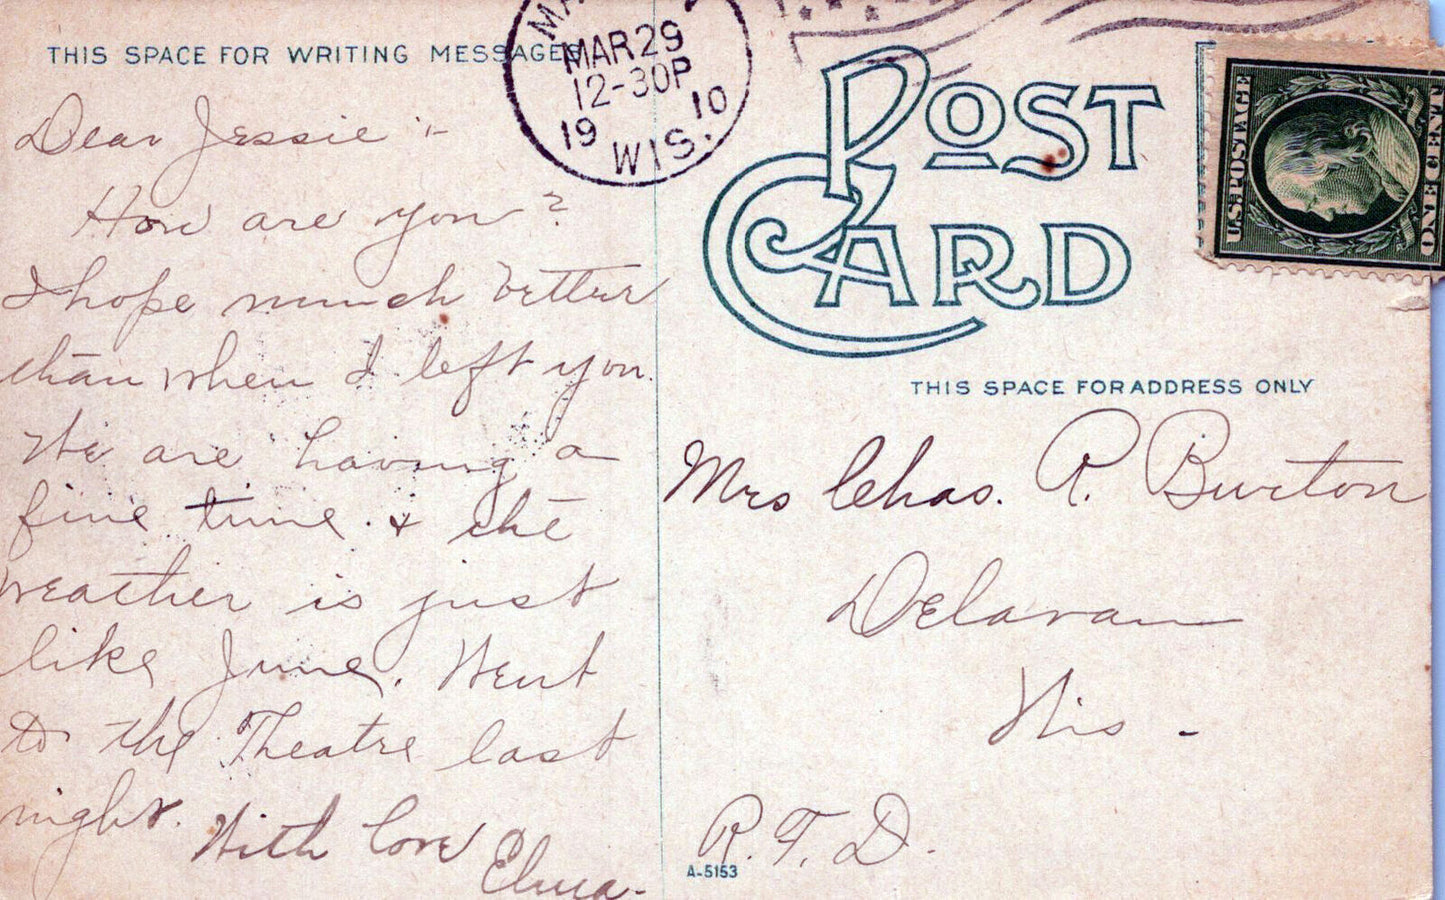 THIS SPACE FOR WRITING MESSAGES
Dear Jessie :-
How are you?
I hope much better
than when I left you.
We are having a
fine time. & the
weather is just
like June. Went
to the Theatre last
night.
With love
Elma.
MAR 29
12-30P
19 10
WIS.
POST
CARD
U.S. POSTAGE
ONE CENT
THIS SPACE FOR ADDRESS ONLY
Mrs Chas. R. Burton
Delavan
Wis -
R. F. D.
A-5153